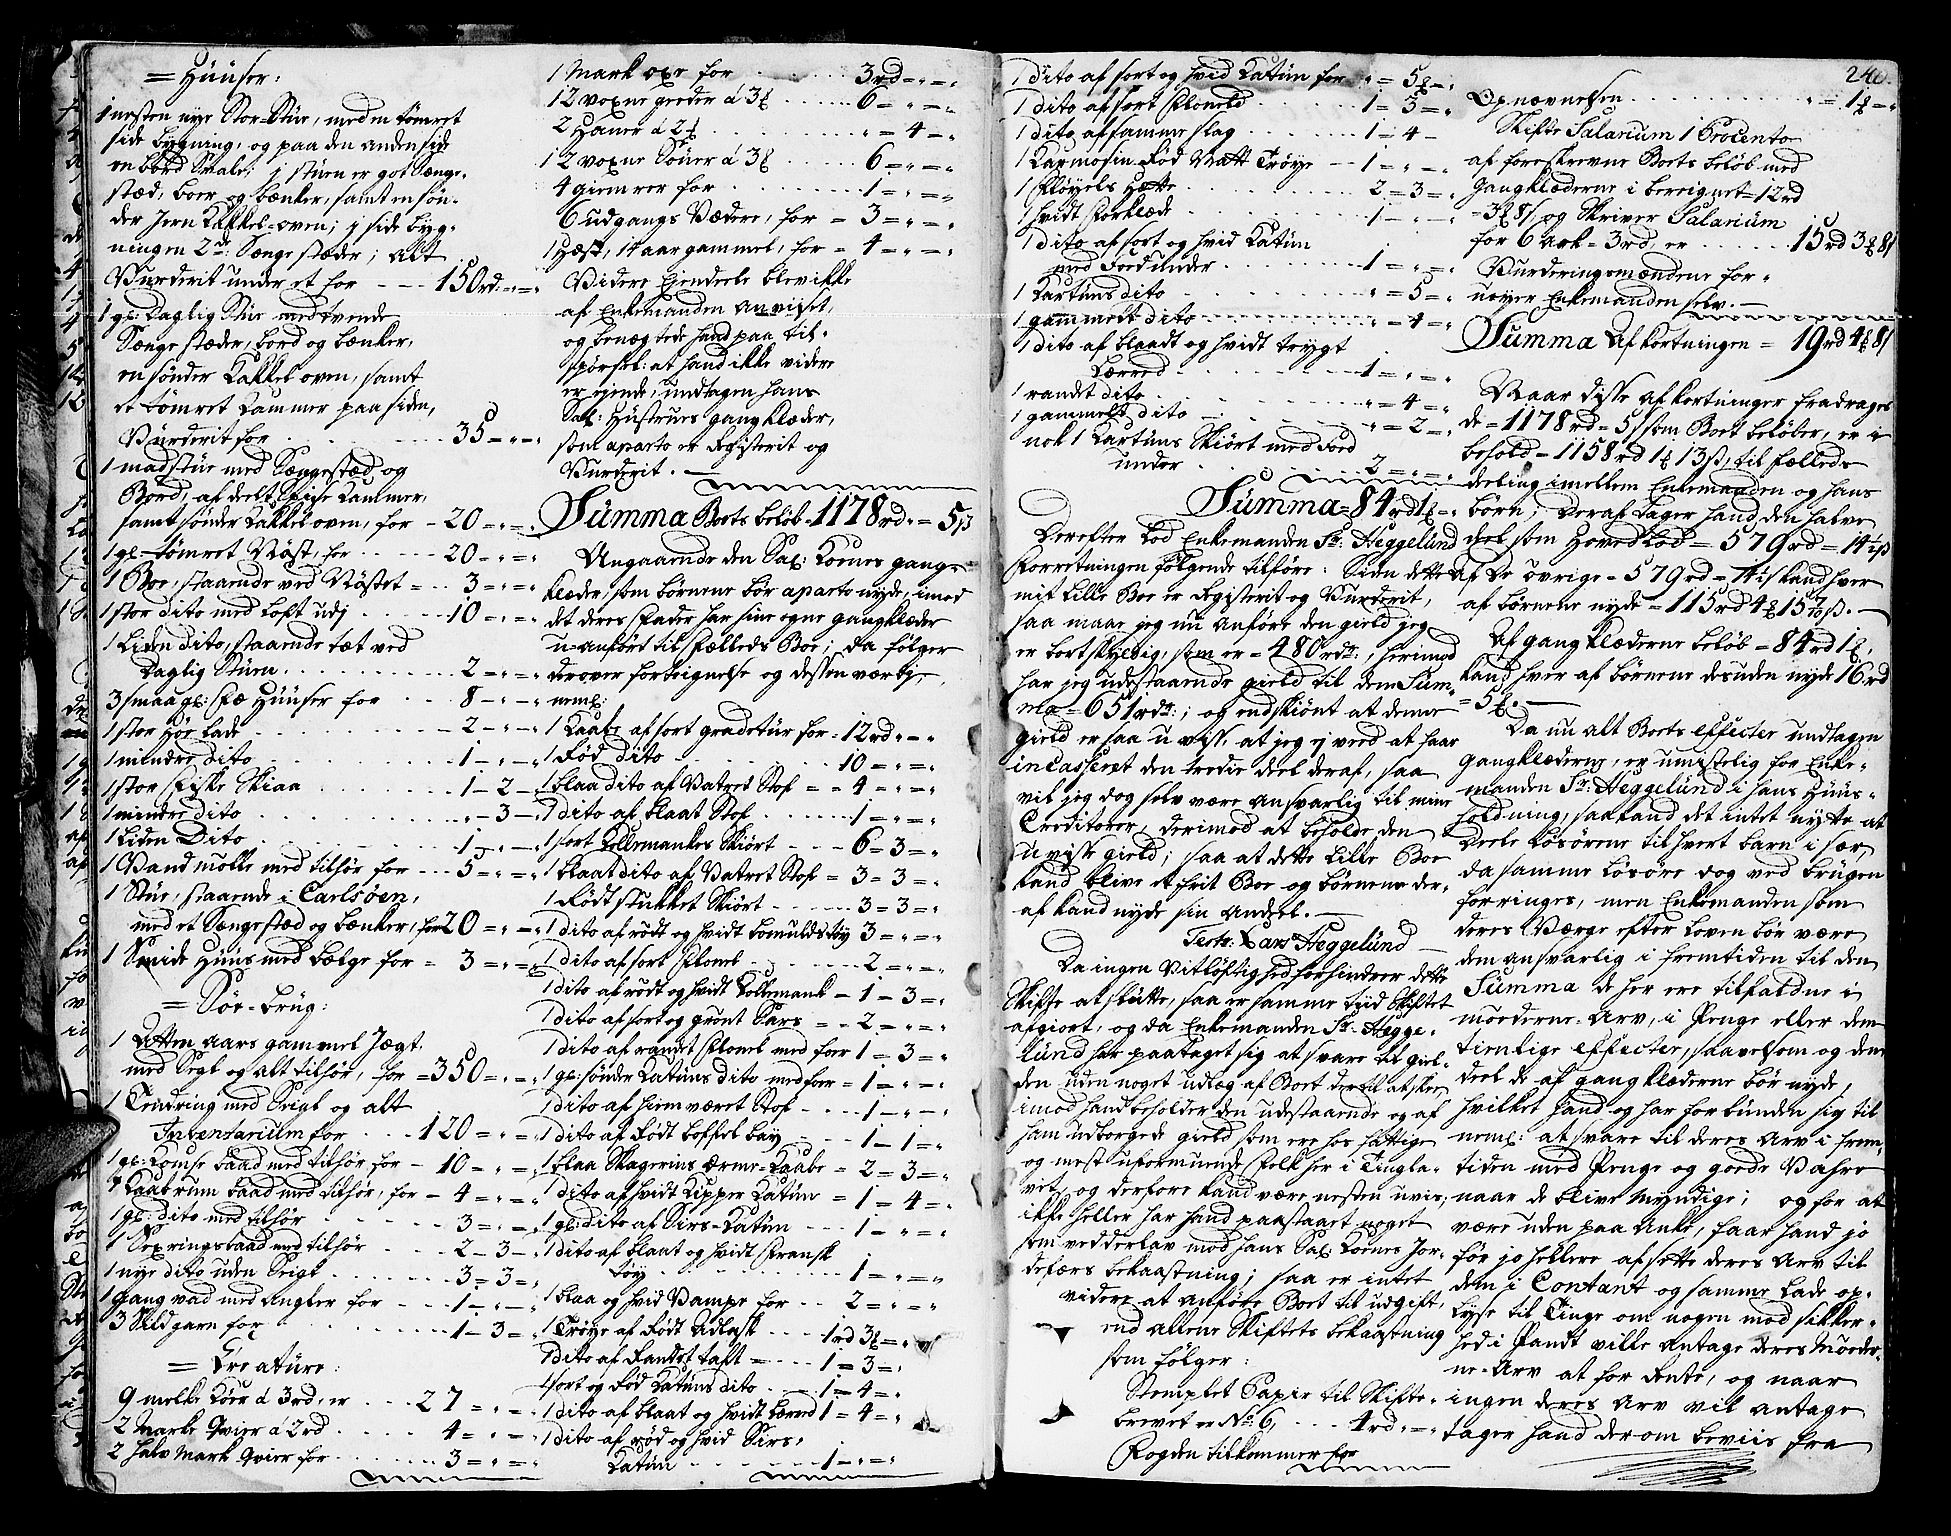 = Hüüser:
1 nesten nye Stor-Stüe, med en tömret
side bygning, og paa den anden side
en bord Svale; j stüen er got Sænge-
stæd, boer og bænker, samt en sön-
der Jern Kakkel-oven; j side byg-
ningen 2de: Senge stæder; alt
Vurderit under et for - - - 150rd. =„=„
1 gl: Daglig Stüe med tvende
Sænge stæder, bord og bænker,
en sönder Kakkel oven, samt
et tömret Kammer paa siden,
Vürderit for . . . . . 35 =„=„
1 madstüe med Sængestæd og
Bord, af deelt Kammer,
samt sönder Kakkel oven, for - 20 =„=„
1 gl: tömret Nöst, for . . . . 20 =„=„
1 Boe, staaende ved Nöstet = . . . 3 =„=„
1 stor dito med Loft udj . . . . 10 =„=„
1 Liden dito, staaende tæt ved
Daglig Stüen . . . . . . . 2 =„=„
3 smaa gl: Fæ Hüüser for . . . 8 =„=„
1 stor Höe Lade . . . . . . 2 =„=„
1 mindre dito . . . . . . 1 =„=„
1 stor Fiske Skiaa . . . . . 1 = 2 =„
1 mindre dito . . . . . . „ = 3 =„
1 Liden Dito . . . . . . 1 =„=„
1 Vand mölle med tilhör for . . . 5 =„=„
1 Stüe, staaende i Carlsöen,
med et Sængestæd og bænker, for 20 =„=„
1 Smide Hüüs med bælge for = 3 =„=„
= Söe-brüg:
1 Otten Aars gammel Jægt
med Segl og alt tilhör, for = 350 =„=„
1 Tendring med Seigl og alt
Inventarium for . . . 120 =„=„
1 gl: Tomse baad med tilhör for - 10 =„=„
1 Kaabrum baad med tilhör, for - 4 =„=„
1 gl: dito med tilhör . . . . 3 =„=„
1 Sexringsbaad med tilhör . . . 2 = 3 =„
1 nye dito uden Seigl . . . . 3 = 3 =„
1 gang vad med Angler for . . . 1 =„=„
3 Sildgarn for . . . . . 1 = 3 =„
= Creatüre:
9 melke Köer á 3rd, er . . . 27 =„=„
2 Marke Qvier á 2rd . . . . 4 =„=„
2 halv Mark Qvier for . . . . 3 =„=„
1 Mark oxe for . . . . 3rd =„=„
12 voxne geeder á 3 . . . 6 =„=„
2 Haner á 2 . . . . „ = 4 =„
12 voxne Söüer á 3 . . . 6 =„=„
4 giemrer for . . . . 1 =„=„
6 udgangs Vædere, for = 3 =„=„
1 Hæst, 14 aar gammel, for = 4 =„=„
Videre Ejendeele blev ikke
af Enkemanden Anvixet,
og benægtede hand paa til-
spörsel: at hand ikke videre
er ejende, undtagen hans
Sal: Hüstrues gangklæder,
som aparto er Registerit og
Vurderit. —
Summa Boets beløb = 1178rd. = 5 ß
Angaaende den Sal: Kones gang-
klæder, som börnene bör aparto nyde, imod
det deres Fader har sine egne gangklæder
u-anfört til Fælleds Boe; Da fölger
derover forteignelse og dessen værdj,
neml:
1 Kaabe af sort gradetür for = 12rd =„=„
1 Röd dito . . . . 10 =„=„
1 blaa dito af Vatret Stof = = 4 =„=„
1 dito af blaat Stof . . . 1 =„=„
1 sort Kallemankes Skiört . . . 6 = 3 =„
1 blaat dito af Vatret Stof = 3 = 3 =„
1 Rödt stükket Skiört . . . 3 = 3 =„
1 dito af rödt og hvidt bomuldstöy 3 =„=„
1 dito af sort Flonel . . . . 2 =„=„
1 dito af rödt og hvidt Kallemank = 1 = 3 =„
1 dito af sort og grönt Sars = = 2 =„=„
1 dito af randet Flonel med foer 1 = 3 =„
1 gl: sönder Katüns dito med foer = 1 =„=„
1 dito af hiemværet Stof . . . 1 =„=„
1 dito af Rödt boffel bay . . . 1 = 1 =„
1 blaa Skagerins ærme-Kaabe = 2 = 3 =„
1 dito af hvidt Kipper Katün = 1 = 4 =„
1 gl: dito af Sirs-Katün . . . 1 =„=„
1 dito af blaat og hvidt Fransk
töy . . . . 1 =„=„
1 blaa og hvid Damper for . . 2 =„=„
1 Tröye af Rödt Adlask . . . 1rd 3 =„
1 dito af Randet taft = . . . 1 = 3 =„
1 sort og Röd Katüns dito . . . 1 = 4 =„
1 dito af blaat og hvidt Lærred 1 = 4 =„
1 dito af röd og hvid Sirs-
Katün . . . . 1 =„=„
1 dito af sort og hvid Katün for „ = 5 =„
1 dito af sort Floneld . . . . 1 = 3 =„
1 dito af samme slag . . . . 1 = 4 =
1 Karmosin Röd Natt Tröye = 1 =„=„
1 Flöyels Hætte . . . . 2 = 3 =„
1 hvidt Forklæde . . . . 1 =„=„
1 dito af sort og hvid Katün
med Foed under . . . . 1 =„=„
1 Kartüns dito . . . . „ = 5 =„
1 gammelt dito . . . . „ = 4 =„
1 dito af blaadt og hvidt trygt
Lærred . . . . 1 =„=„
1 randt dito . . . . „ = 4 =„
1 gammelt dito . . . . „ = 2 =„
nok 1 Kartüns Skiört med Foed
under . . . . 2 =„=„
Summa = 84rd 1 =„
Derefter lod Enkemanden Sr. Heggelünd
Forretningen fölgende tilföre: Siden dette
mit lille Boe er Registerit og Vurderit,
saa maae jeg nu anföre den gield jeg
er bortskyldig, som er = 480rdr:, herimod
har jeg udestaaende gield til dem Süm-
ma = 651rdr:; og endskiönt at denne
gield er saa u-viss, at jeg ej veed at faae
incasseret den tredie deel deraf, saa
vil jeg dog selv være ansvarlig til mine
Creditorer, derimod at beholde den
u-visse gield; saa at dette lille Boe
kand blive et frit Boe og börnene der-
af kand nyde sin Andeel. —
Test: Lars Heggelünd —
Da ingen Vitlöftighed forhindrer dette
Skifte at slütte, saa er samme tiid Skiftet
afgiort, og da Enkemanden Sr: Hegge-
lünd har paataget sig at svare til giel-
den uden noget udlæg af Boet dertil at skee,
imod hand beholder den udestaaende og af
ham udborgede gield som ere hos fattige
og mest uformuende Folk her i Tingla-
vet, og derfore kand være nesten uvis,
ikke heller har hand paastaaet noget
som vedderlav mod hans Sal: Kones Jor-
defærs bekaastning; saa er intet
videre at anföre Boet til udgift,
end allene Skiftets bekaastning
som fölger:
Stemplet Papir til Skifte-
brevet er No. 6, . . . 4rd =„=„
Fogden tilkommer for
240.
Opnævnelsen . . . . „ = 1 =„
Skifte Salarium 1 Procento
af foreskrevne Boets belöb med
gangklæderne i beregnet = 12rd
= 3 8 ß og Skriver Salarium
for 6 Ark = 3rd, er . . . 15rd 3 8 ß
Vurderingsmændene for-
nöyer Enkemanden selv. —
Summa Afkortningen = 19rd 4 8 ß
Naar disse afkortninger fradrages
de = 1178rd = 5 ß som Boet belöber, er i
behold = 1158rd 1 13 ß, til fælleds
deeling imellem Enkemanden og hans
börn; Deraf tager hand den halve
deel som Hoved Lod = 579rd = 14½ ß
af de övrige = 579rd = 14½ ß kand hver
af börnene nyde = 115rd 4 15 ß. —
Af gangklæderne belöb = 84rd 1,
kand hver af börnene desuden nyde 16rd
= 5. —
Da nu alt Boets effecter undtagen
gangklæderne, er umistelig for Enke-
manden Sr: Heggelünd i hans Hüüs-
holdning, saa kand det intet nytte at
deele Lösörene til hvert barn i sær,
da samme Lösöre dog ved brügen
forringes, men Enkemanden som
deres Værge efter Loven bör være
dem ansvarlig i fremtiden til den
Summa de her ere tilfaldne i
möederne-Arv, i Penge eller dem
tienlige effecter, saavelsom og den
deel de af gangklæderne bör nyde,
hvilket hand og har forbünden sig til
neml: at svare til deres Arv i frem-
tiden med Penge og goede Vahre
naar de blive myndige; og for at
være uden paa Anke, faar hand jo
för jo hellere afsette deres Arv til
dem i Contant og samme lade op-
lyse til Tinge om nogen mod sikker-
hed i Pandt ville antage deres Möeder-
ne-Arv at for Rente, og naar
ingen deres Arv vil antage
tager hand derom beviis fra